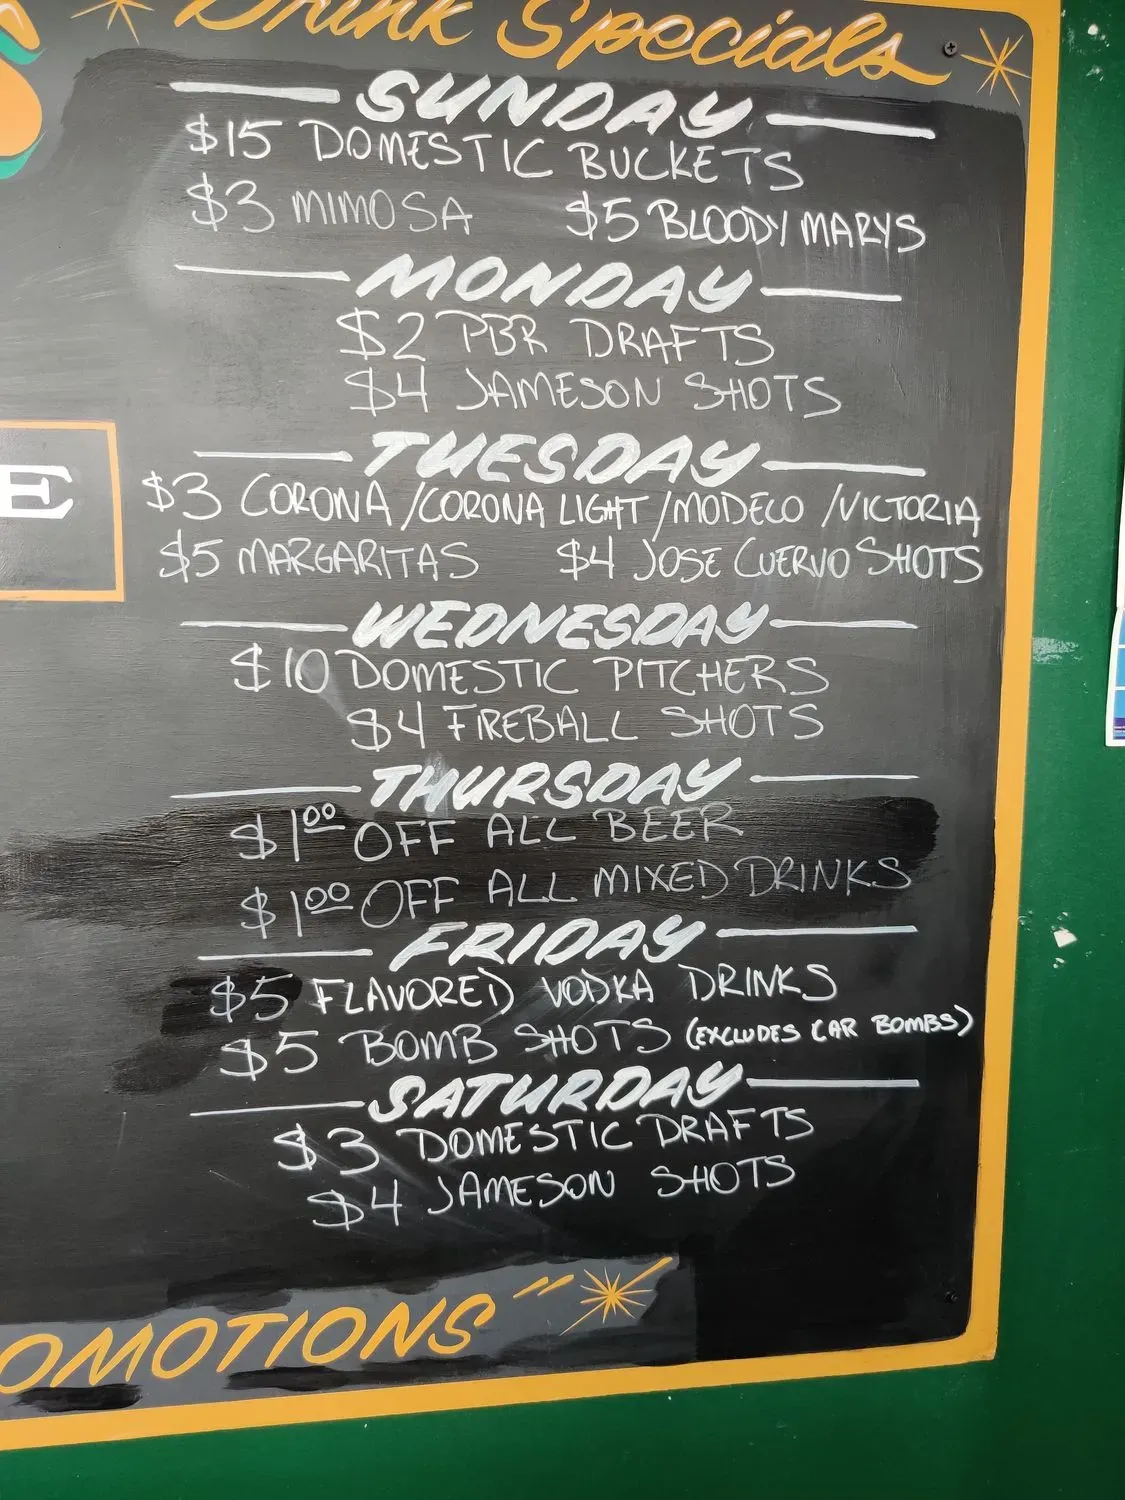 Drink Specials
SUNDAY
$15 DOMESTIC BUCKETS
$3 MIMOSA $5 BLOODY MARYS
MONDAY
$2 PBR DRAFTS
$4 JAMESON SHOTS
TUESDAY
$3 CORONA/CORONA LIGHT/MODELO/VICTORIA
$5 MARGARITAS $4 JOSE CUERVO SHOTS
E
WEDNESDAY
$10 DOMESTIC PITCHERS
$4 FIREBALL SHOTS
THURSDAY
$1.00 OFF ALL BEER
$1.00 OFF ALL MIXED DRINKS
FRIDAY
$5 FLAVORED VODKA DRINKS
$5 BOMB SHOTS (EXCLUDES CAR BOMBS)
SATURDAY
$3 DOMESTIC DRAFTS
$4 JAMESON SHOTS
OMOTIONS"